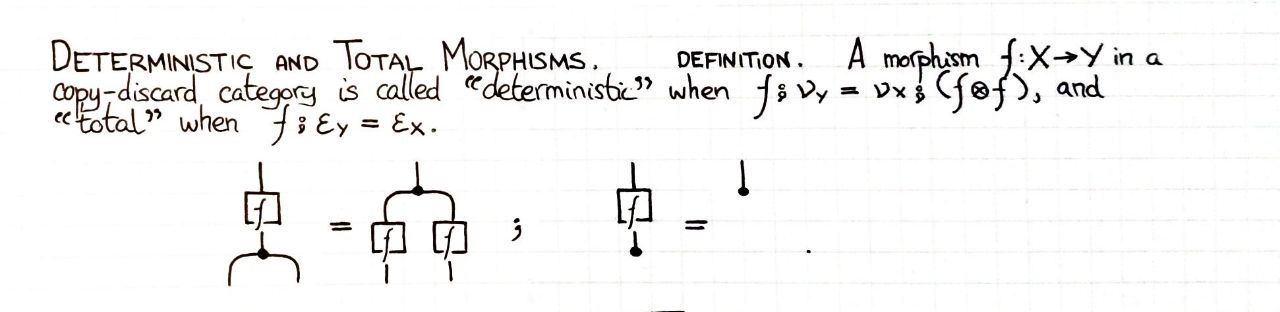 DETERMINISTIC AND TOTAL MORPHISMS. DEFINITION. A morphism f:X→Y in a
copy-discard category is called “deterministic” when f⨾ν_Y = ν_X⨾(f⊗f), and
“total” when f⨾ε_Y = ε_X.
f = f f ; f = .